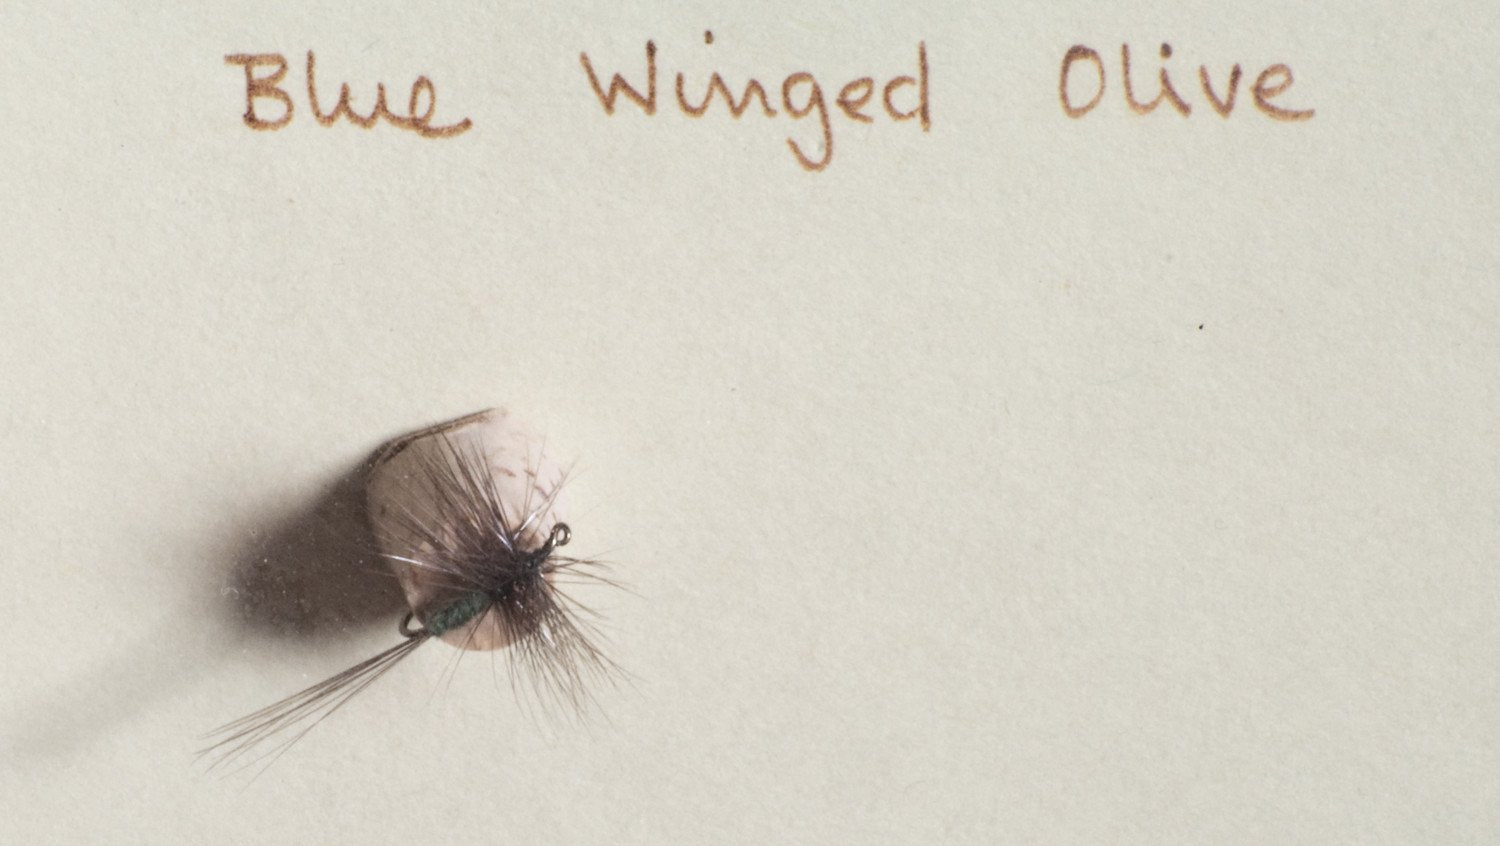 Blue Winged Olive